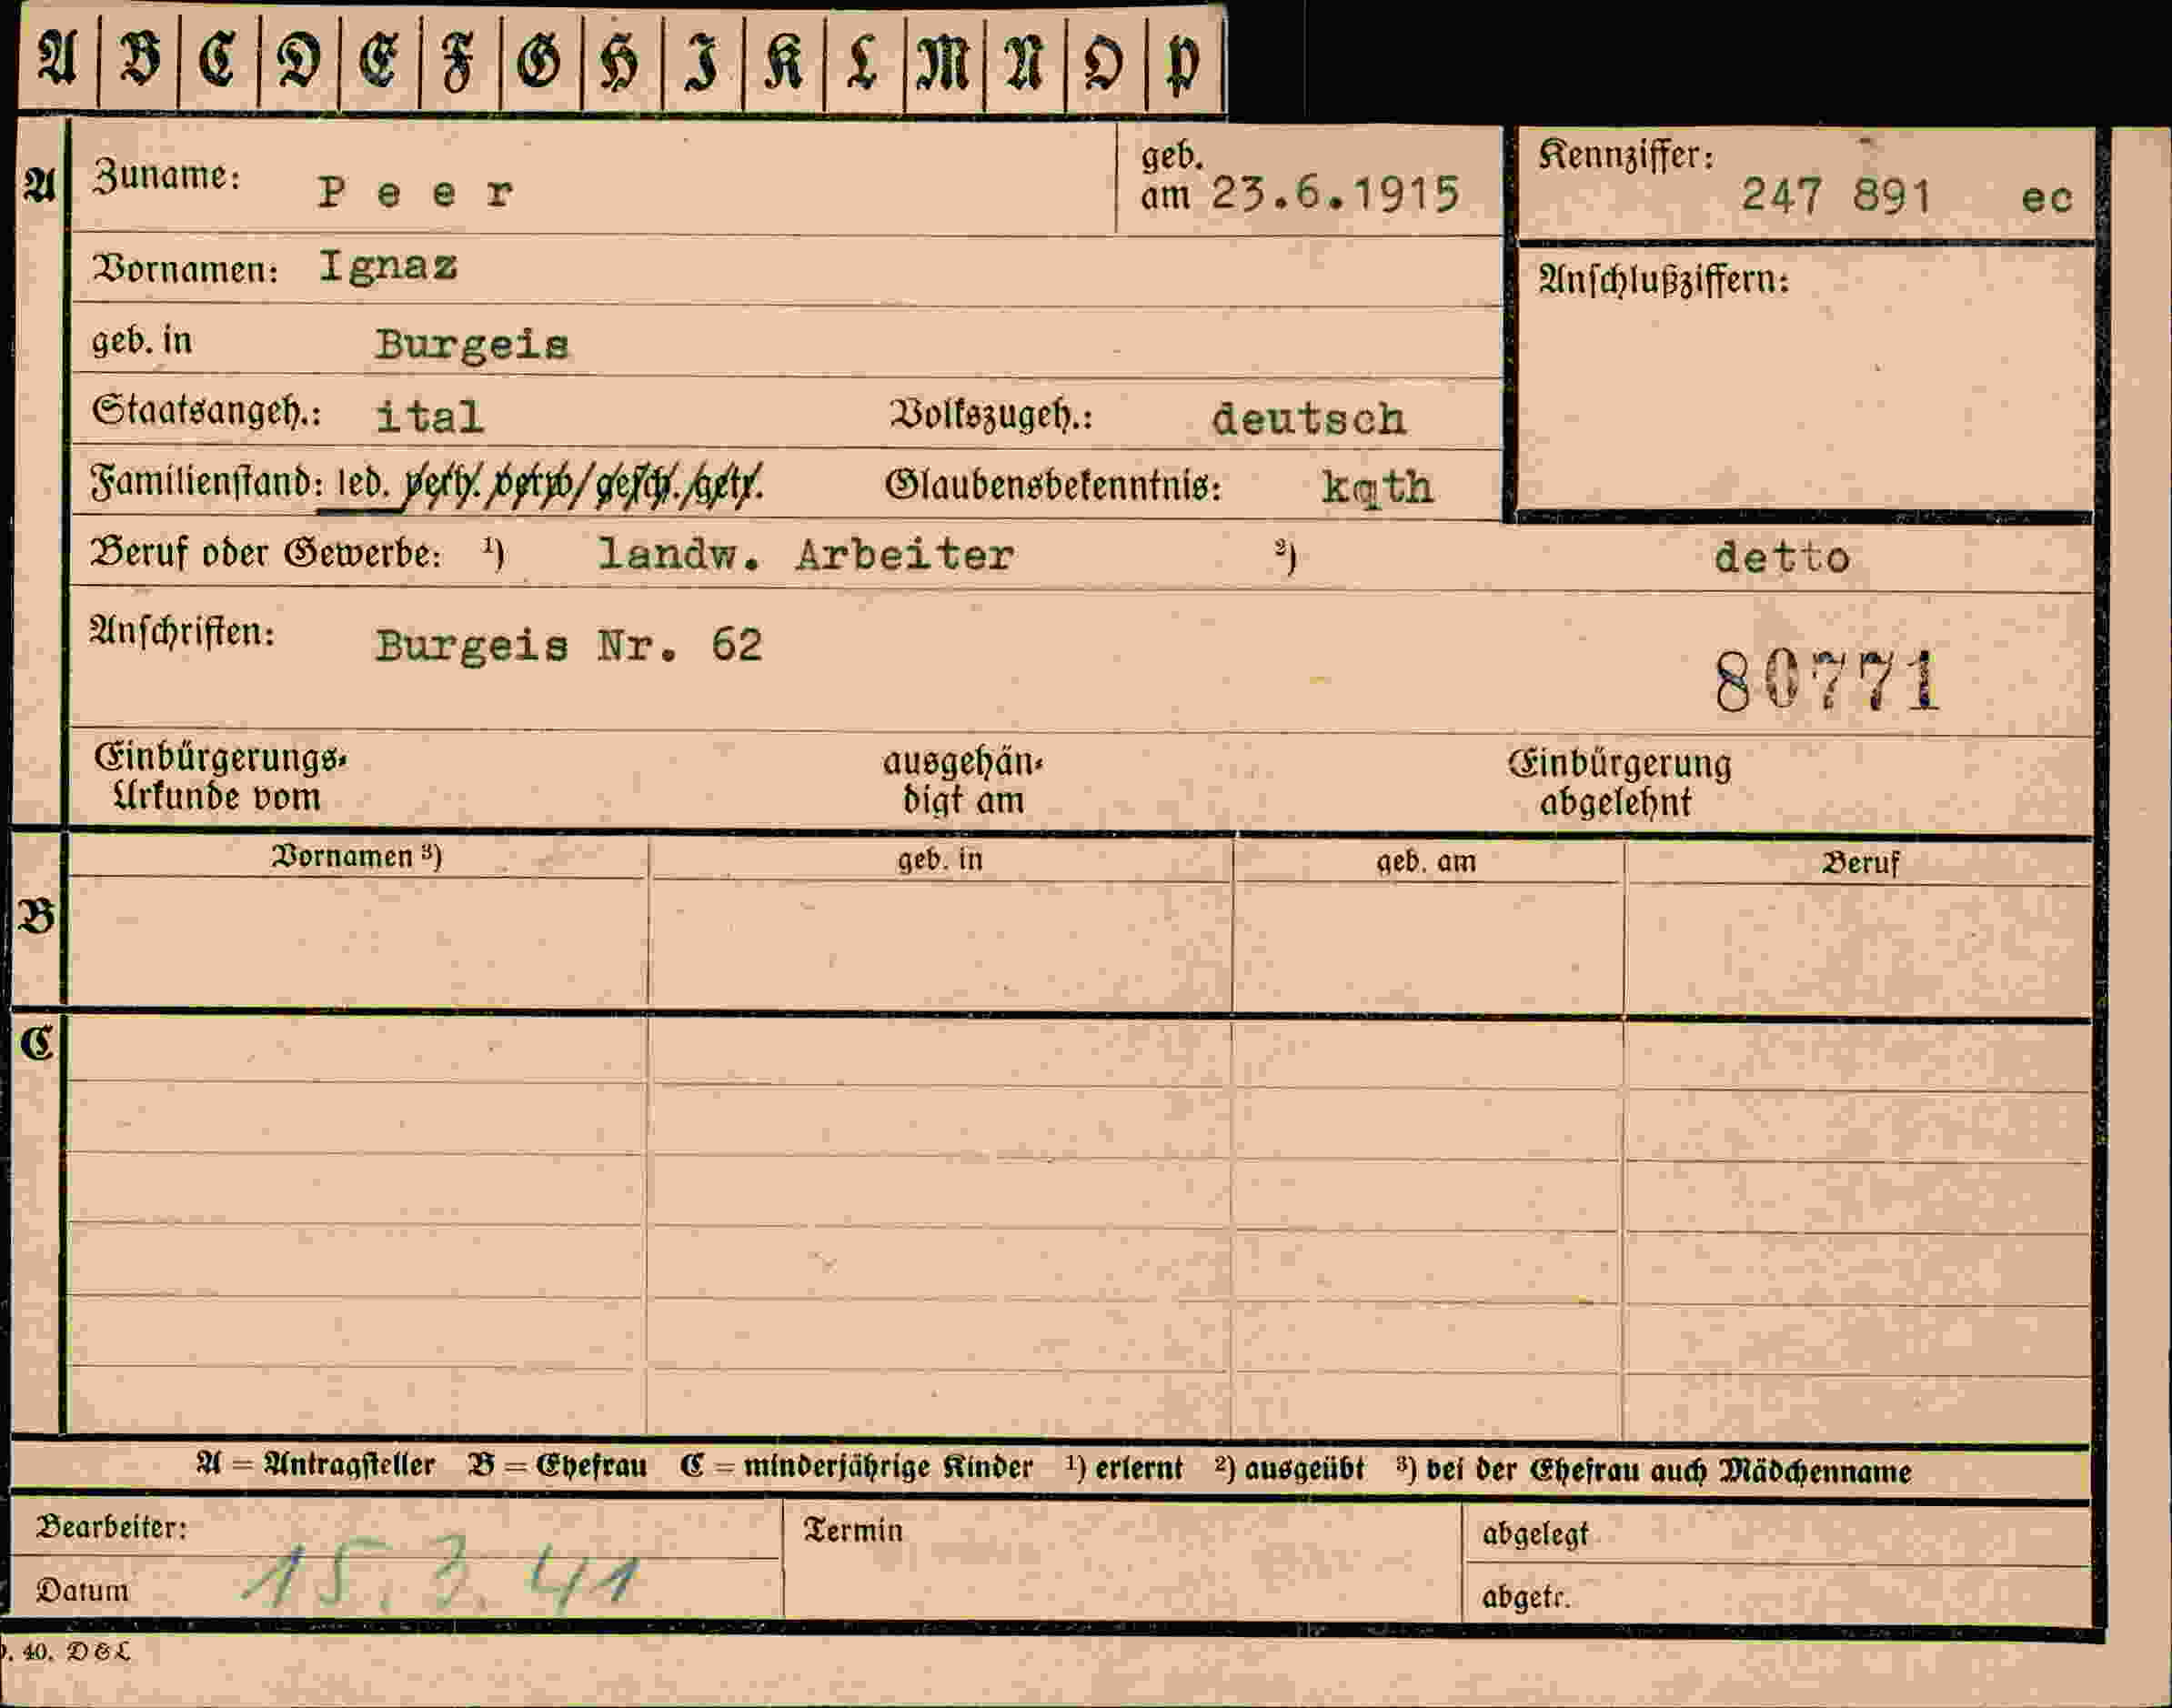 A B C D E F G H I K L M N O P
A Zuname: Peer geb. am 23.6.1915 Kennziffer: 247 891 ec
Vornamen: Ignaz Anschlußziffern:
geb. in Burgeis
Staatsangeh.: ital Volkszugeh.: deutsch
Familienstand: led. verh. verw. gesch. getr. Glaubensbekenntnis: kath
Beruf oder Gewerbe: ¹) landw. Arbeiter ²) detto
Anschriften: Burgeis Nr. 62 80771
Einbürgerungs- ausgehän- Einbürgerung
Urkunde vom digt am abgelehnt
Vornamen ³) geb. in geb. am Beruf
B
C
A = Antragsteller B = Ehefrau C = minderjährige Kinder ¹) erlernt ²) ausgeübt ³) bei der Ehefrau auch Mädchenname
Bearbeiter: Termin abgelegt
Datum 15.3.41 abgetr.
40. D&L